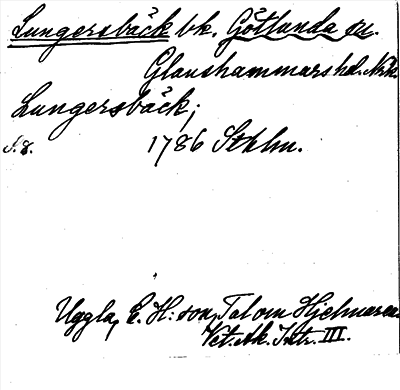 Lungersbäck bk. Götlunda sn.
Glanshammars hd. Nrk.
Lungersbäck;
S. 8. 1786 Sthlm.
Uggla, E. H:son, Tal om Hjelmaren
Vet. ak. Intr. III.